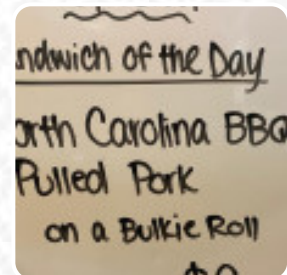 ndwich of the Day
orth Carolina BBQ
Pulled Pork
on a Bulkie Roll